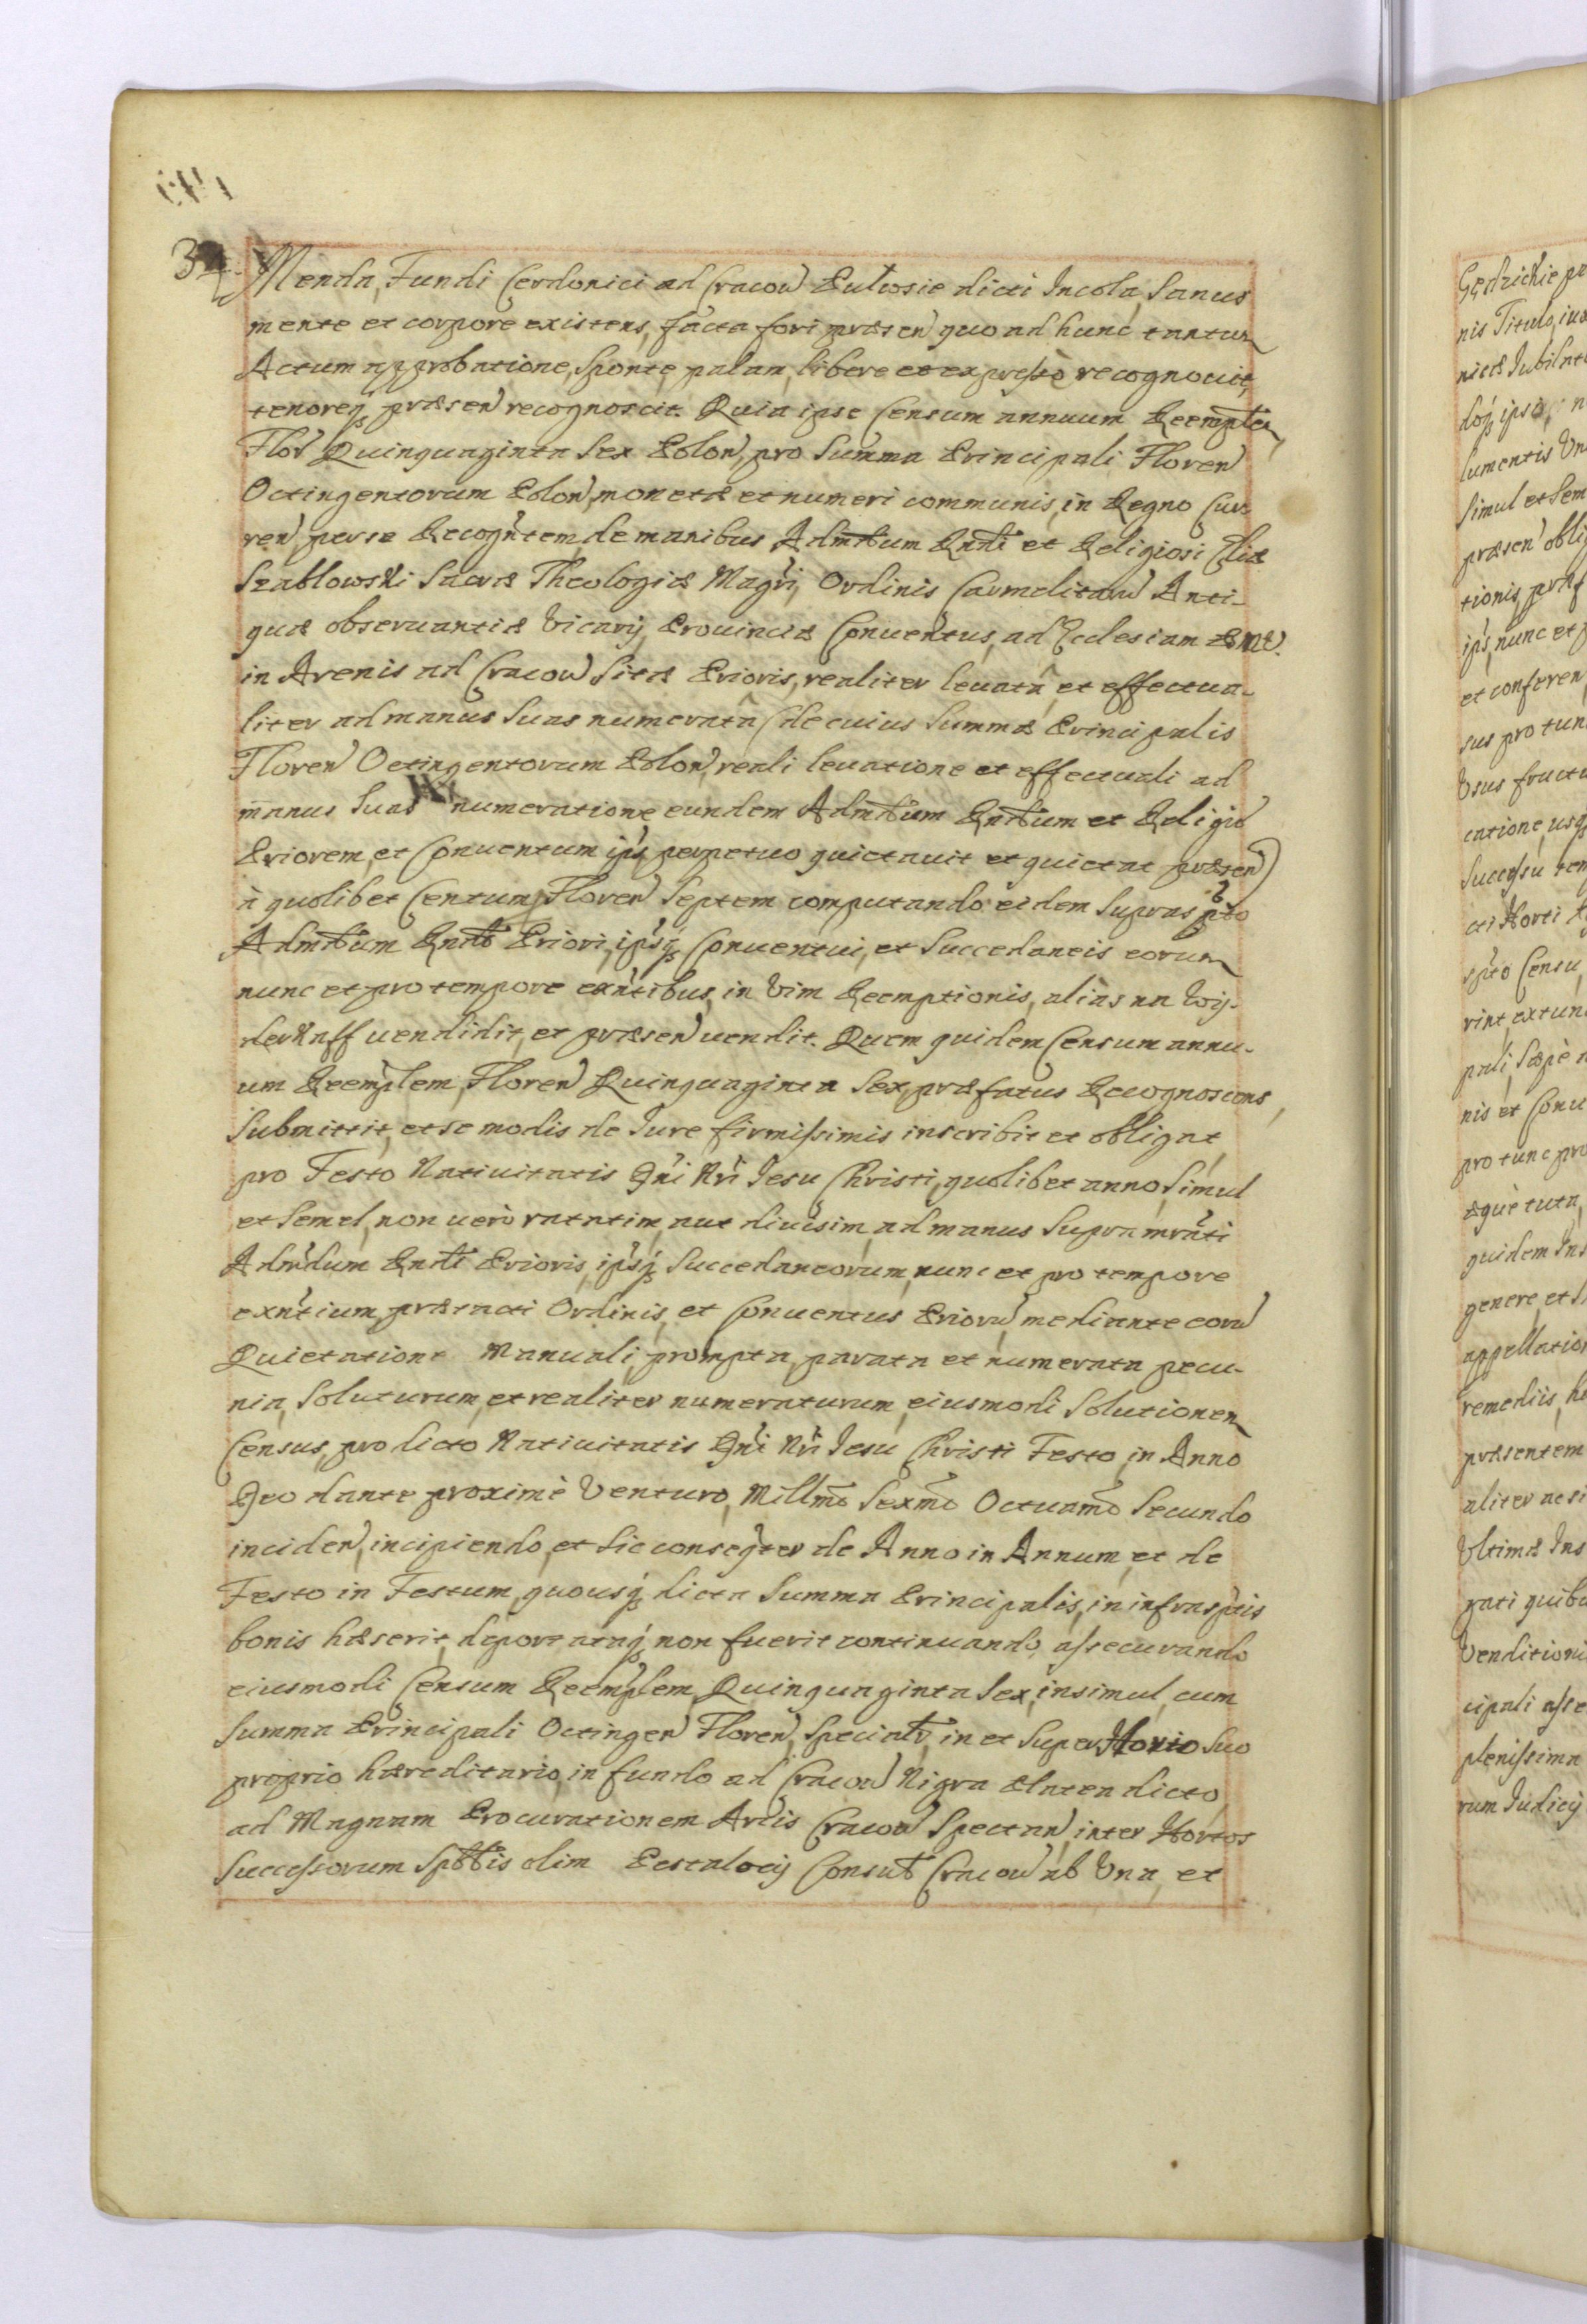 Menda, Fundi Cerdonici ad Cracow Pulwsie dicti Incola, Sanus
mente et corpore existens, facta fori præsen quo ad hunc tantum
Actum approbatione, Sponte, palam, libere et expresse recognovit,
tenoreq præsen recognoscit. Quia ipse Censum annuum Reemptlem
Flor Quinquaginta Sex Polon, pro Summa Principali Floren
Octingentorum Polon, monetæ et numeri communis, in Regno Cur
ren, per se Recogntem, de manibus Admdum Rndi et Religiosi Eliæ
Szablowski Sacræ Theologiæ Magri, Ordinis Carmelitaru Anti-
quæ observantiæ Vicarij Provinciæ Conventus, ad Ecclesiam BMV.
in Arenis ad Cracow Sitæ Prioris, realiter levatâ, et effectua-
liter ad manus Suas numeratâ (de cuius Summæ Principalis
Floren Octingentorum Polon, reali levatione et effectuali ad
manus Suas numeratione eundem Admdum Rndum et Religio
Priorem, et Conventum ips perpetuo quictavit et quictat præsen)
à quolibet Centum, Floren Septem computando eidem Suprasspto
Admdum Rndo Priori, ipsq Conventui, et Succedaneis eorum
nunc et pro tempore exntibus, in Vim Reemptionis, alias na wij-
derkaff vendidit, et præsen vendit. Quem quidem Censum annu-
um Reemplem, Floren Quinquaginta Sex, præfatus Recognoscens
Submittit, et se modis de Iure firmissimis inscribit et obligat,
pro Festo Nativitatis Dni Nri Iesu Christi, quolibet anno, Simul
et Semel, non verò ratatim, aut divisim, ad manus Supramrati
Admdum Rndi Prioris, ipsq Succedaneorum, nunc et pro tempore
exntium, prætacti Ordinis, et Conventus Prioru, mediante eoru
Quietatione Manuali, prompta, parata et numerata pecu-
nia, Soluturum, et realiter numeraturum, eiusmodi Solutionem
Census, pro dicto Nativitatis Dni Nri Iesu Christi Festo, in Anno
Deo dante proximè Venturo, Millmo Sexmo Octuamo Secundo
inciden, incipiendo, et Sic conseqter de Anno in Annum, et de
Festo in Festum, quousq dicta Summa Principalis, in infrasptis
bonis hæserit, deportataq non fuerit continuando, assecurando
eiusmodi Censum Reemplem, Quinquaginta Sex, insimul, cum
Summa Principali Octingen Floren, Specialr, in et Super Horto Suo
proprio hæreditario, in fundo ad Cracow Nigra Platea dicto
ad Magnam Procurationem Arcis Cracow Spectan, inter Hortos
Successorum Spblis olim Pestalocij Consulis Cracow ab Una, et